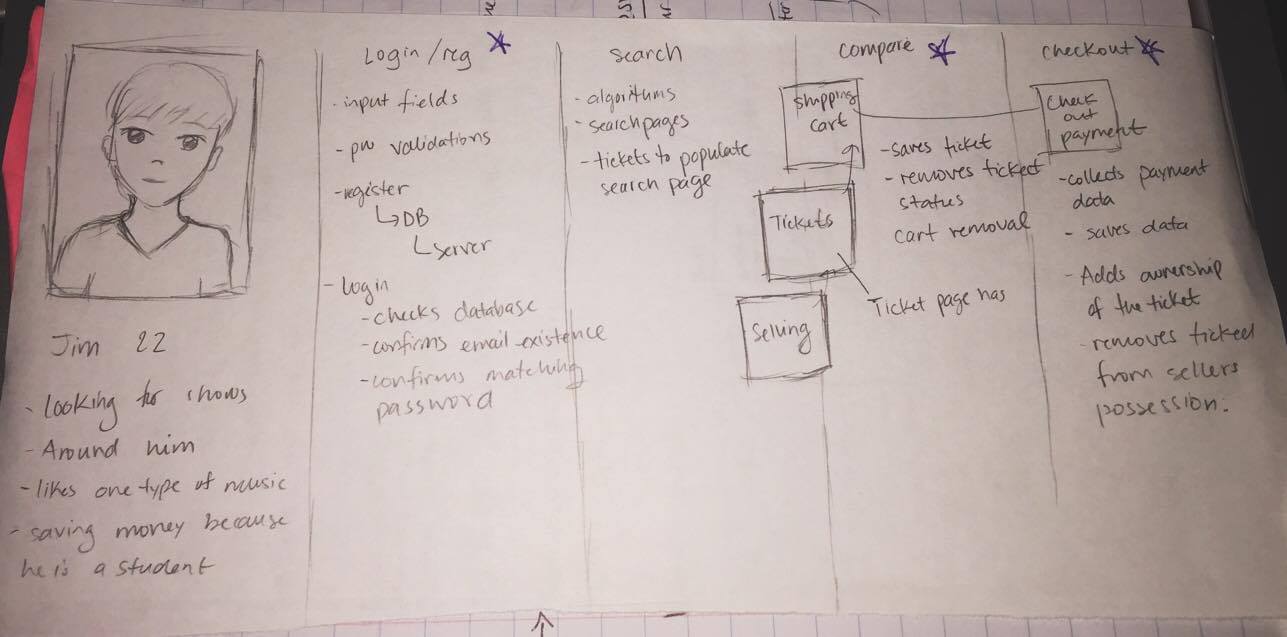 Jim 22
- looking for shows
- Around him
- likes one type of music
- saving money because
he is a student
Login/reg
- input fields
- pw validations
- register
DB
server
- login
- checks database
- confirms email existence
- confirms matching
password
search
- algoritums
- search pages
- tickets to populate
search page
compare
shipping
cart
Tickets
Selling
- saves ticket
- removes ticket
status
cart removal
Ticket page has
checkout
Check
out
payment
- collects payment
data
- saves data
- Adds ownership
of the ticket
- removes ticket
from sellers
possession.